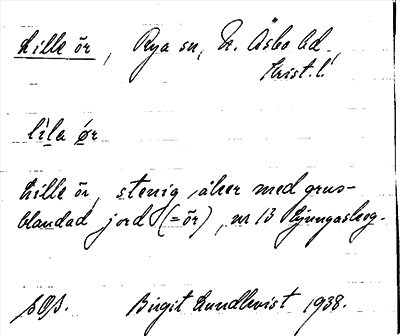 Lille ör, Rya sn, N. Åsbo hd.
Krist. l.
lila ør
Lille ör, stenig åker med grus-
blandad jord (= ör), nr 13 Ljungaskog.
Birgit Lundkvist 1938.